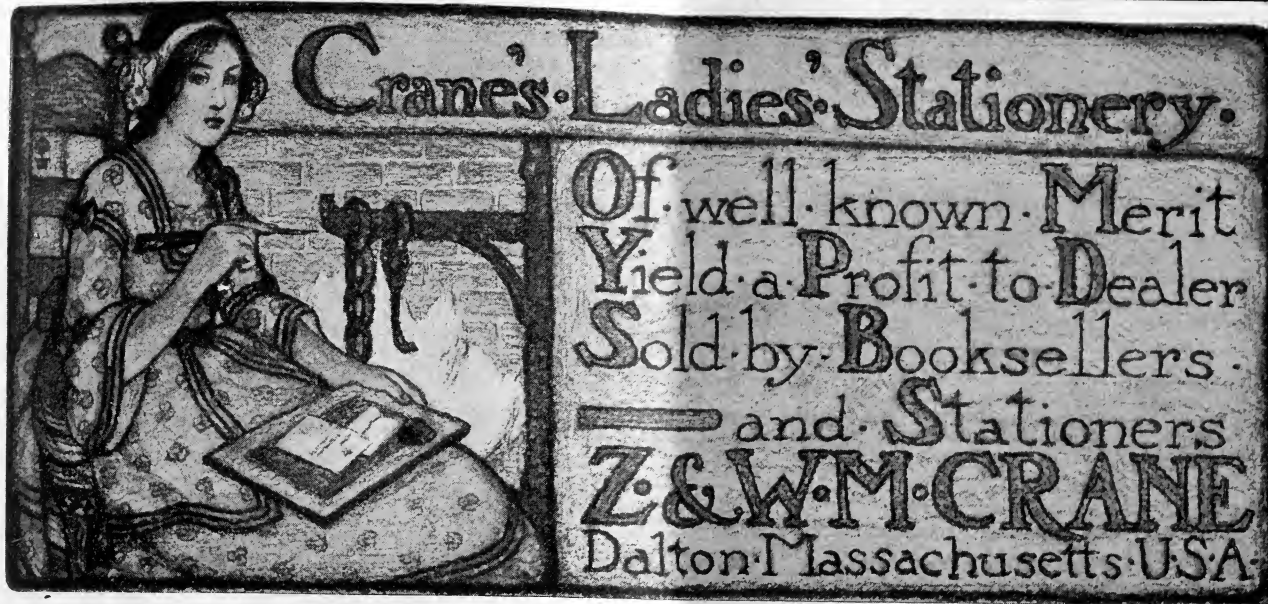 Crane's·Ladies'·Stationery·
Of·well·known·Merit
Yield·a·Profit·to·Dealer
Sold·by·Booksellers·
and·Stationers
Z·&W·M·CRANE
Dalton·Massachusetts·U·S·A·